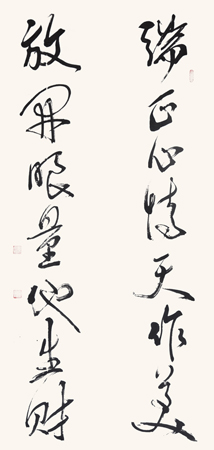 端正心情天作美
放开眼量地生财